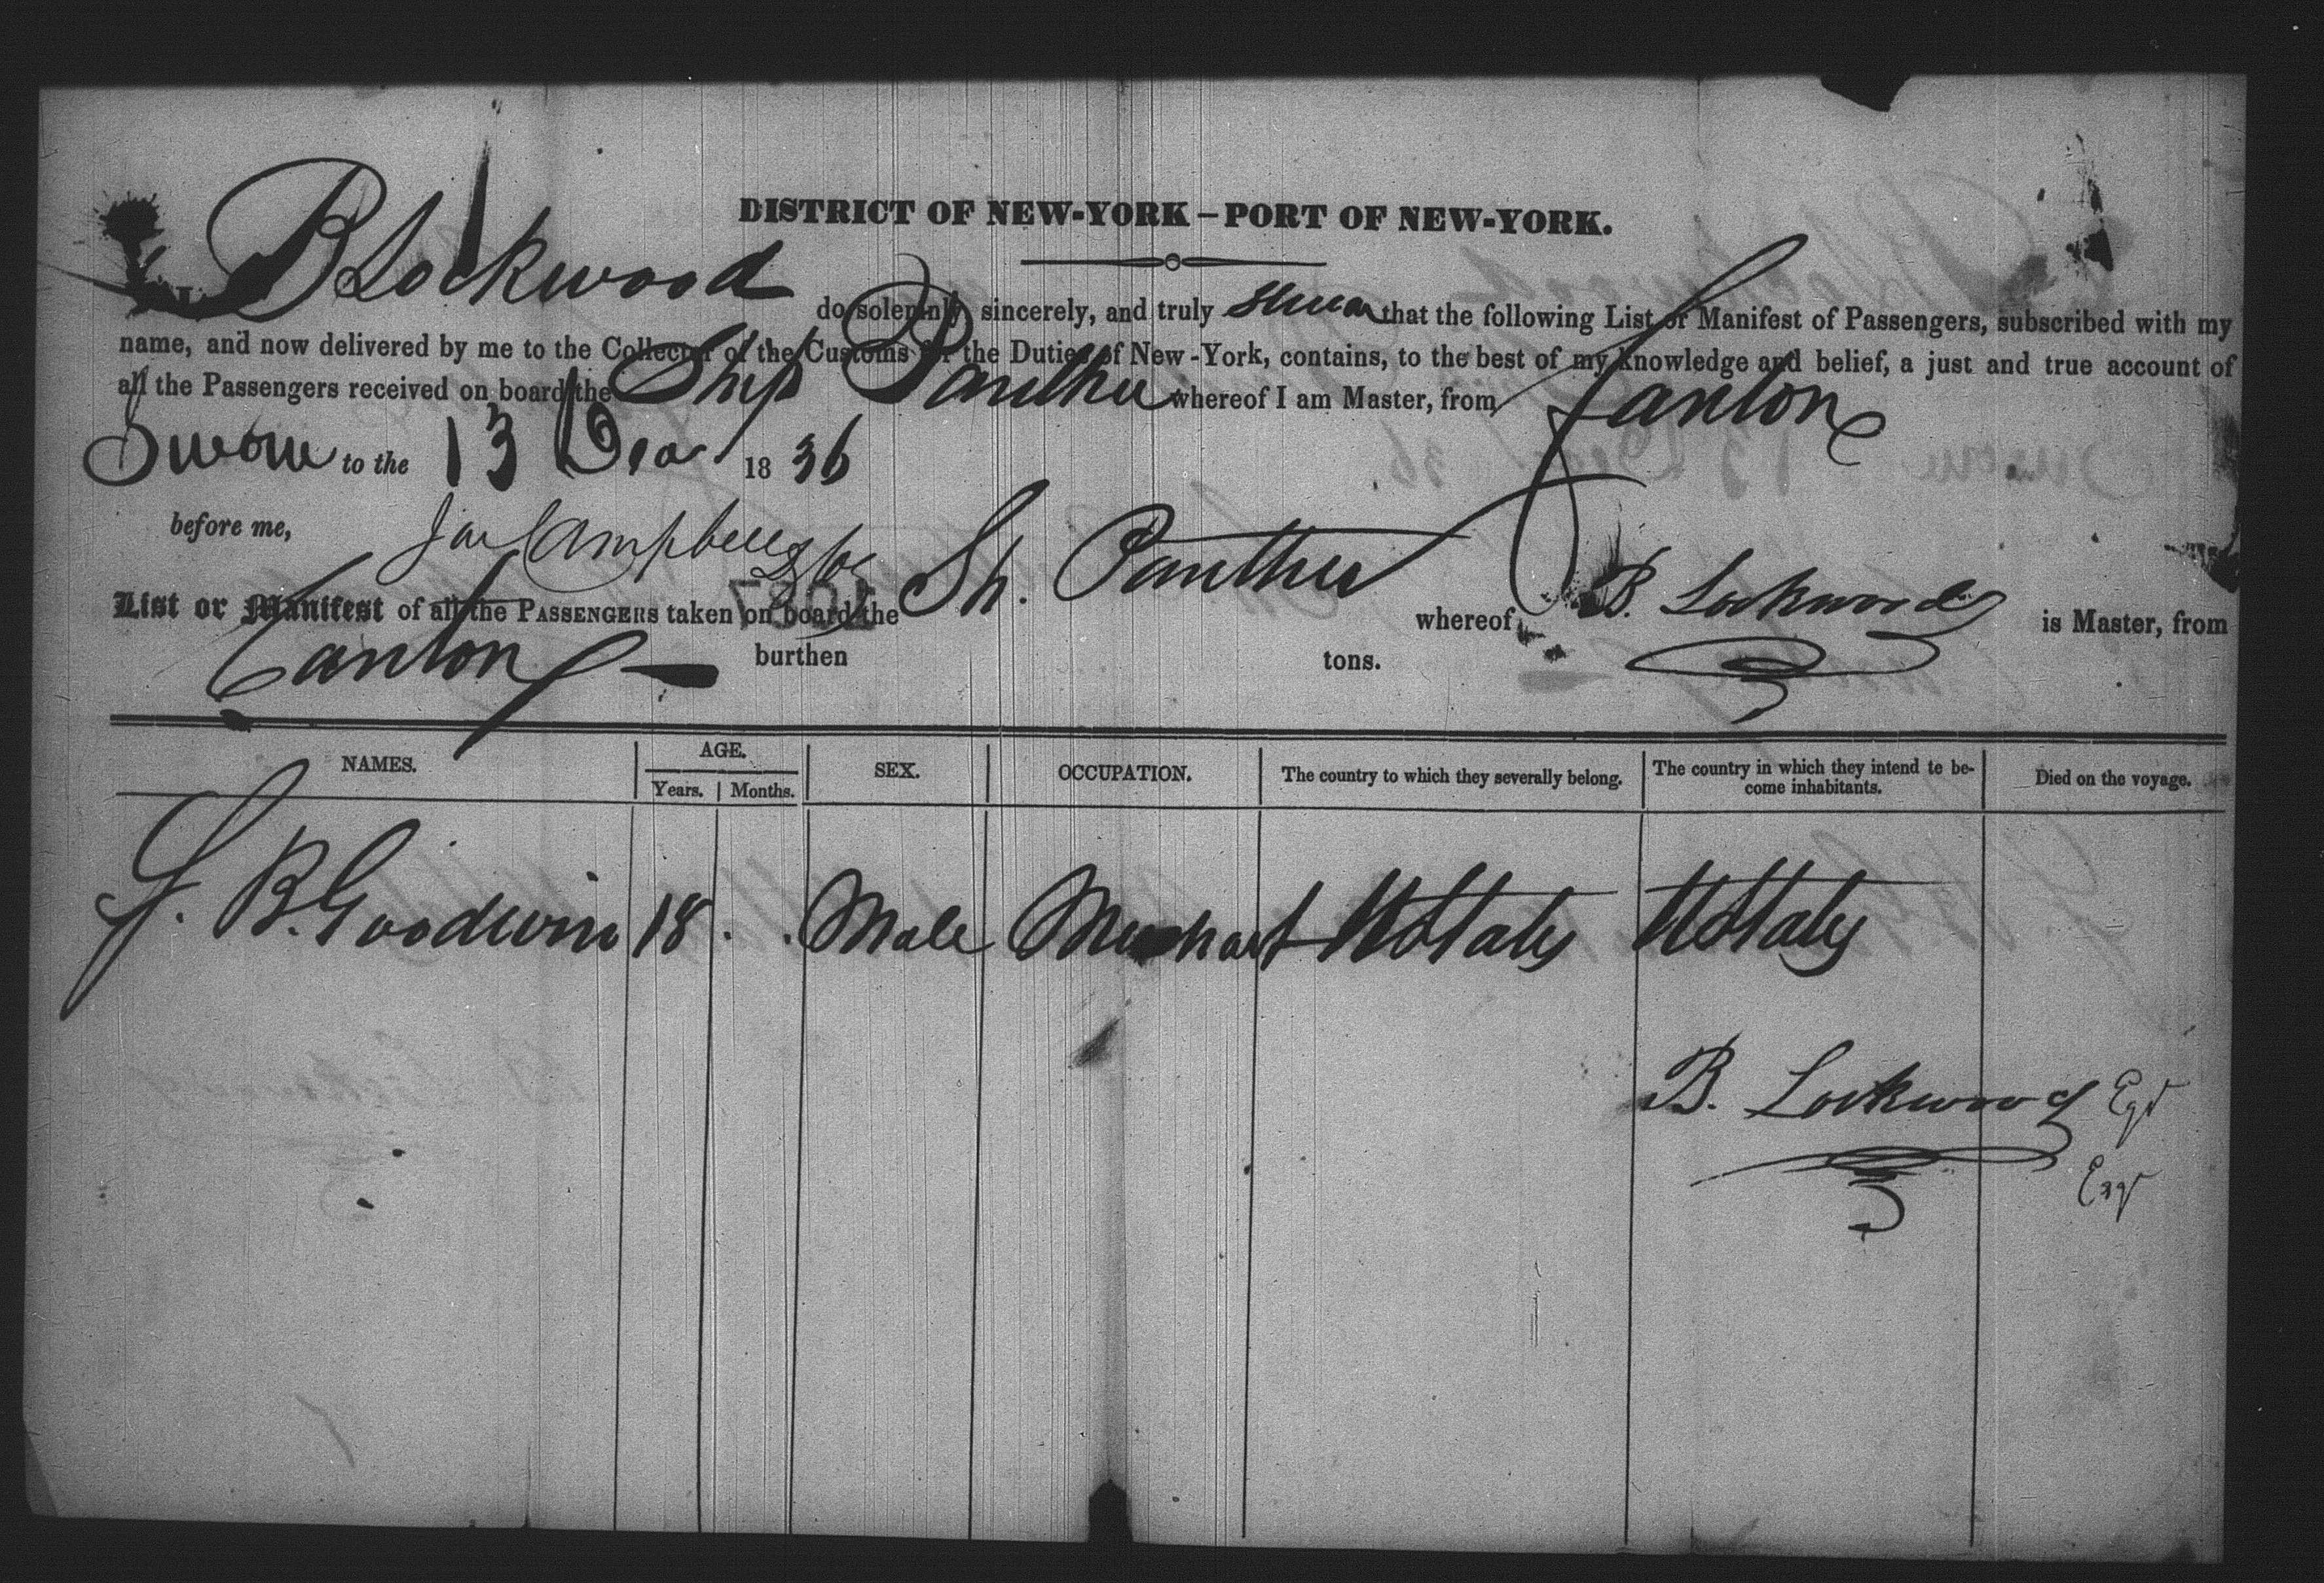 DISTRICT OF NEW-YORK – PORT OF NEW-YORK.
I, B Lockwood do solemnly, sincerely, and truly swear that the following List or Manifest of Passengers, subscribed with my
name, and now delivered by me to the Collector of the Customs for the Duties of New-York, contains, to the best of my knowledge and belief, a just and true account of
all the Passengers received on board the Ship Panther whereof I am Master, from Canton
Sworn to the 13 Dec 1836
before me, Campbell
List or Manifest of all the PASSENGERS taken on board the Sh. Panther whereof B. Lockwood is Master, from
Canton burthen tons.
NAMES. AGE. SEX. OCCUPATION. The country to which they severally belong. The country in which they intend te be-
come inhabitants. Died on the voyage.
Years. Months.
B. Goodwin 18 Male Merchant UStates UStates
B. Lockwood